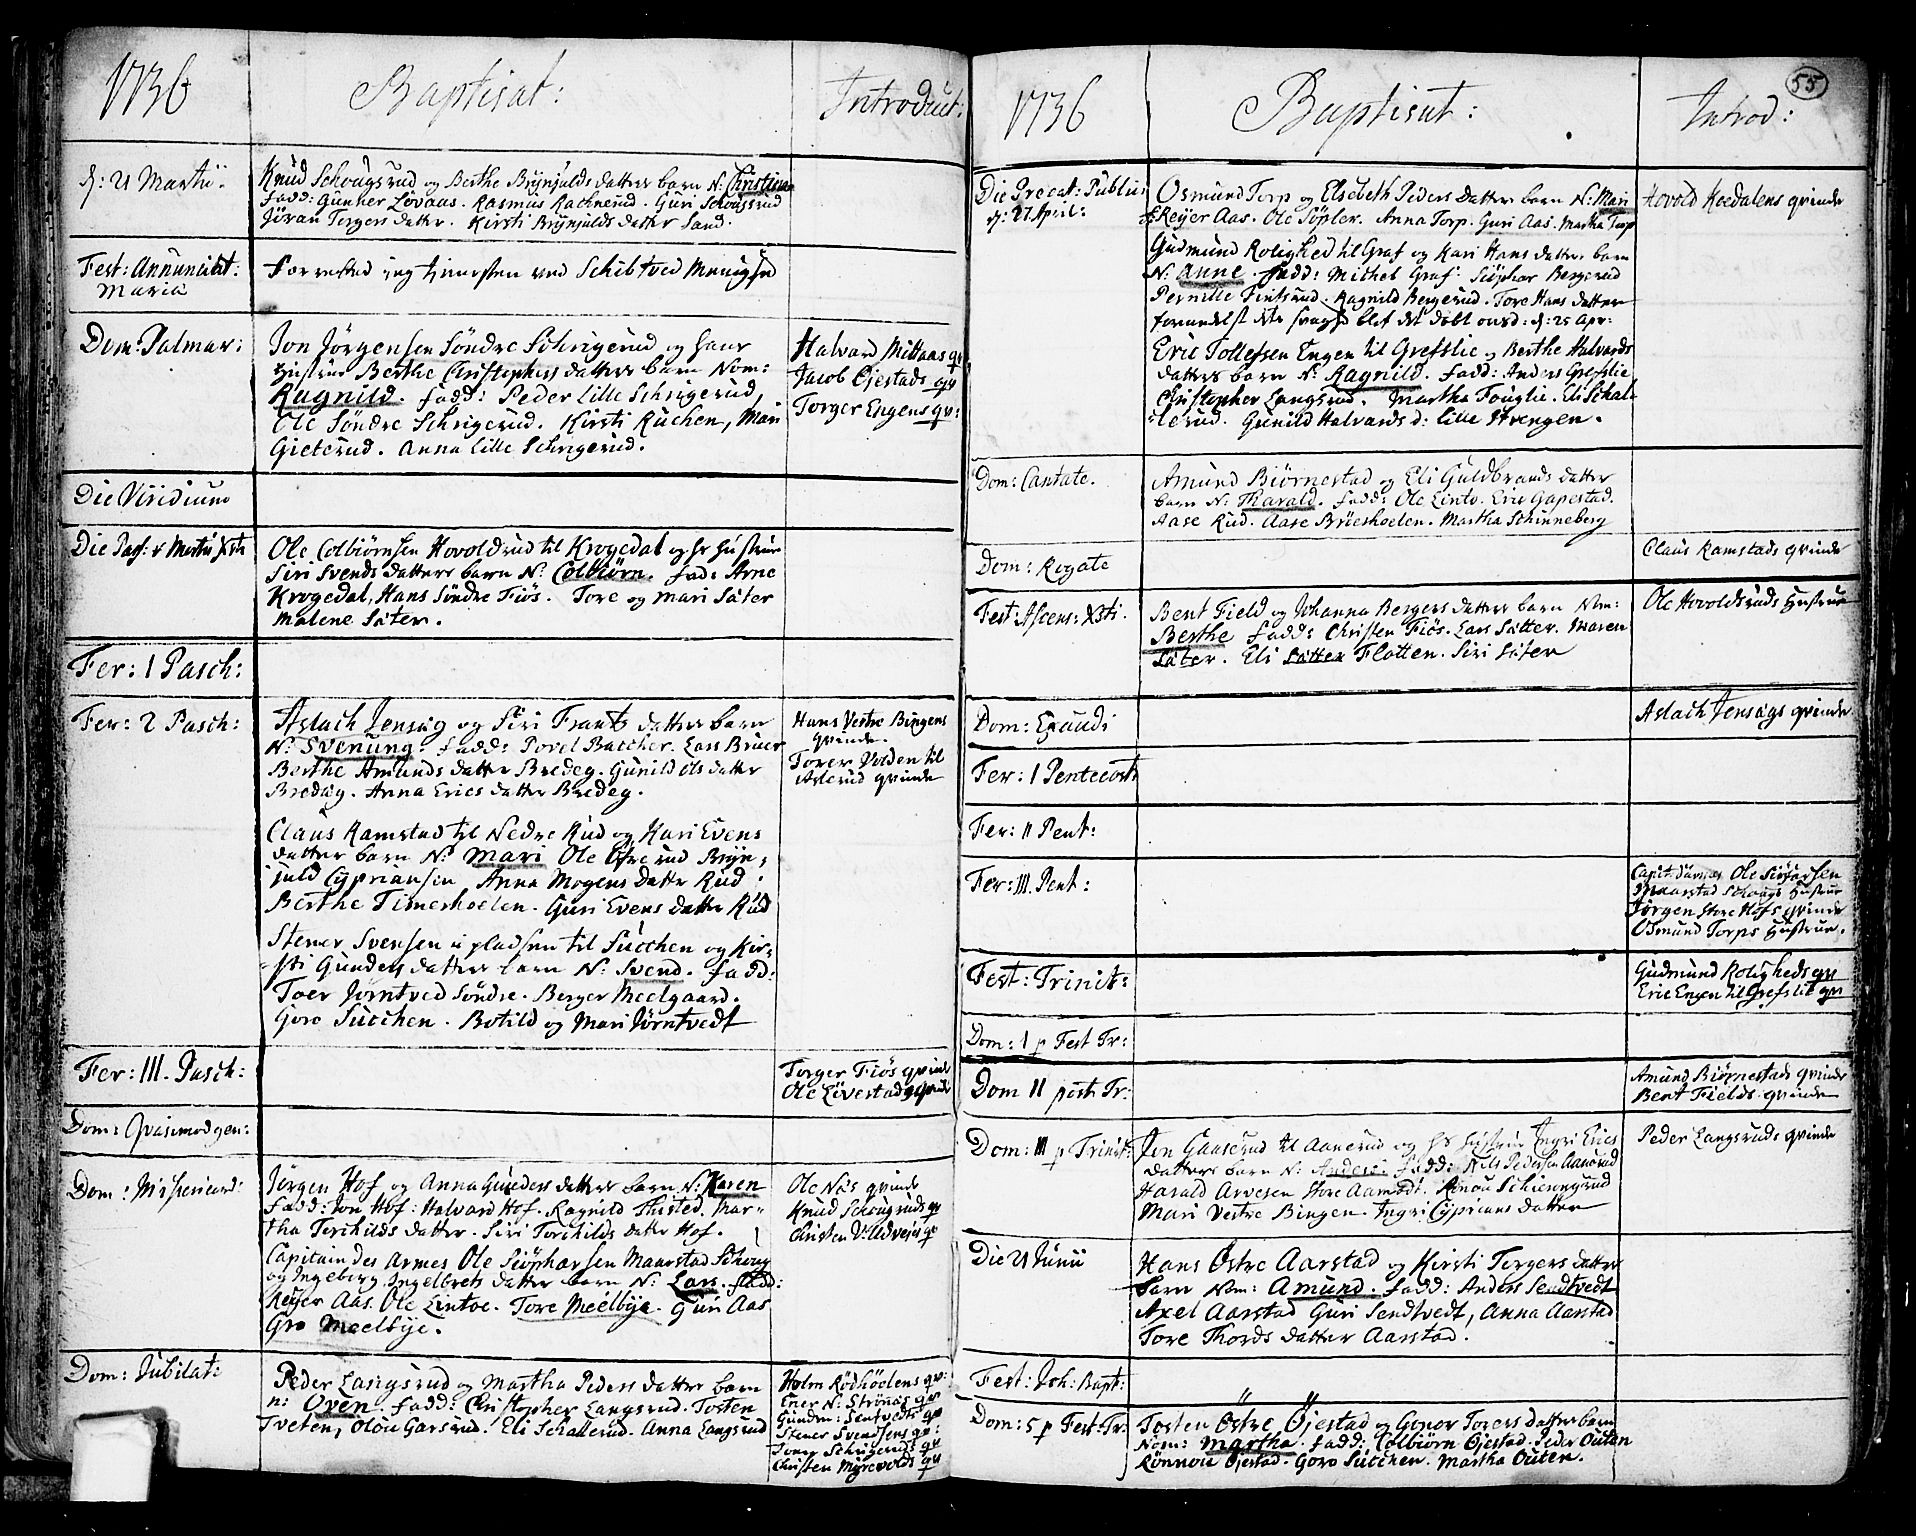 1736 Baptisat: Introduct:
d: 21 Martii.
Knud Schougsrud og Berthe Brynjulds datters barn N: Christian
fadd: Gunner Løvaas. Rasmus Rachnerud. Guri Schougsrud
Jöran Torgers datter. Kirsti Brynjulds datter Sand.
Fest: Annunciat:
Mariæ
forretted jeg tjenesten ved Schibtved Menighed
Dom: Palmar:
Jon Jörgensen Söndre Schrigerud og hans
Hustru Berthe Christophers datters barn Nom:
Ragnild. fadd: Peder Lille Schrigerud,
Ole Söndre Schrigerud. Kirsti Ruchen, Mari
Gieterud. Anna Lille Schrigerud.
Halvard Mittaas qv
Jacob Öjestads qv
Torger Engens qv:
Die Viridium
Die Pass: & Mortis Xsti
Ole Colbiörnsen Hovoldrud til Krogedal og hs Hustrue
Siri Svends datters barn N: Colbiörn. fad: Arne
Krogedal, Hans Söndre Fiös. Tore og Mari Säter
Malene Säter.
Fer: 1 Pasch:
Fer: 2 Pasch:
Aslach Jensåg og Siri Frants datters barn
N: Svenung. fadd: Povel Batcher. Lars Bruer
Berthe Amunds datter Bredeg. Gunild Ols datter
Bredåg. Anna Erics datter Bredeg.
Hans Vestre Bingens
qvinde.
Torer Volden til
Aslerud qvinde
Claus Ramstad til Nedre Rud og Kari Evens
datters barn N: Mari Ole Öfre rud Bryn,
juld Cypriansen Anna Mogens datter Rud.
Berthe Timeshoelen. Guri Evens datter Rud
Stener Svensen i pladsen til Sutchen og Kir-
sti Gunders datters barn N: Svend. fadd:
Toer Jörntved Söndre. Berger Meelgaard.
Goro Sutchen. Botild og Mari Jörntvedt
Fer: III. Pasch:
Torger Fiös qvinde
Ole Lövestads qvinde
Dom: Qvasimodgen:
Dom: Misericord:
Jörgen Hof og Anna Gunders datters barn N: Karen
fadd: Jon Hof: Halvard Hof. Ragnild Thisted. Mar-
tha Torchilds datter. Siri Torchilds datter Hof.
Ole Näs qvinde
Knud Schougruds qv
Christen V: Ulvejes qv
Capitain des Armes Ole Siöpharsen Maarstad Schoug
og Ingeborg Ingelbrets datters barn N: Lars. fadd:
Reyer Aas. Ole Lintoe. Tore Meelbye. Guri Aas
Gro Meelbye.
Dom: Jubilati
Peder Langsrud og Martha Peders datters barn
n: Oven. fadd: Christopher Langsrud. Tosten
Tveten, Olöu Garsrud. Eli Schallerud. Anna Langsrud
Holm Rödhöelens qv:
Ener N: Strönäs qv
Gunder: Sentvedts qv
Stener Svendsens qv:
Joen Schrigeruds qv
Christen Myrevolds qv
1736 Baptisat: Introd: 55
Die Precat: Public:
d: 27 April:
Osmund Torp og Elsebeth Peders datters barn N: Mari
f: Reyer Aas. Ole Töpler. Anna Torp. Guri Aas. Martha Torp
Hovold Hoedalens qvinde
Gudmund Rolighed til Graf og Kari Hans datters barn
N: Anne. fadd: Michel Graf. Siöphar Bergerud
Pernille Tintsrud. Ragnild Bergerud. Tore Hans datter
formedelst dets svaghed blef det döbt onsd: d: 25 Apr:
Eric Tollefsen Engen til Grefslie og Berthe Halvards
datters barn N: Ragnild. fadd: Anders Grefslie
Christopher Langsrud. Martha Fouglie. Eli Schal-
lerud. Gunild Halvards d: lille Strengen.
Dom: Cantate.
Amund Biörnestad og Eli Guldbrands datter
barn N: Tharald. fadd: Ole Linto. Eric Gapestad.
Aase Rud. Aase Bröeshoelen. Martha Schinneberg
Dom: Rogate
Claus Ramstads qvinde
Fest: Ascens: Xsti.
Bent Field og Johanna Bergers datters barn Nom:
Berthe fadd: Christen Fiös. Lars Sätter. Maren
Säter. Eli Sätter Flotten. Siri Säter
Ole Hovoldsruds Hustrue
Dom: Exaudi
Aslach Jensågs qvinde
Fer: 1 Pentecost
Fer: II Pent:
Fer: III. Pent:
Capit: darmes Ole Siöfarsen
Maarstad Schougs Hustrue
Jörgen Store Hofs qvinde
Osmund Torps Hustrue.
Fest: Trinit:
Gudmund Roligheds qv
Eric Engen til Grefslie qv
Dom: 1 p Fest Tr:
Dom II post Tr:
Amund Biörnestads qvinde
Bent Fields qvinde
Dom: III p Trinit:
Jon Gaaserud til Aanerud og hs Hustrue Ingri Erics
datters barn N: Anders. fadd: Nils Pedersen Aanerud
Harald Arvesen Store Aamodt. Rönou Schierengrud
Mari Vestre Bingen. Ingri Cyprians datter
Peder Langsruds qvinde
Die 21 Junii
Hans Östre Aarstad og Kirsti Torgers datter
barn Nom: Amund. fadd: Anders Sendtvedt
Axel Aarstad Guri Sendtvedt, Anna Aarstad
Tore Thords datter Aarstad.
Fest: Joh: Bapt:
Dom: 5 p Fest: Tr:
Tosten Östre Öjestad og Gonor Torers datters barn
Nom: Martha. fadd: Colbiörn Öjestad. Peder Outen
Rönnou Öjestad. Goro Sutchen. Martha Outen.